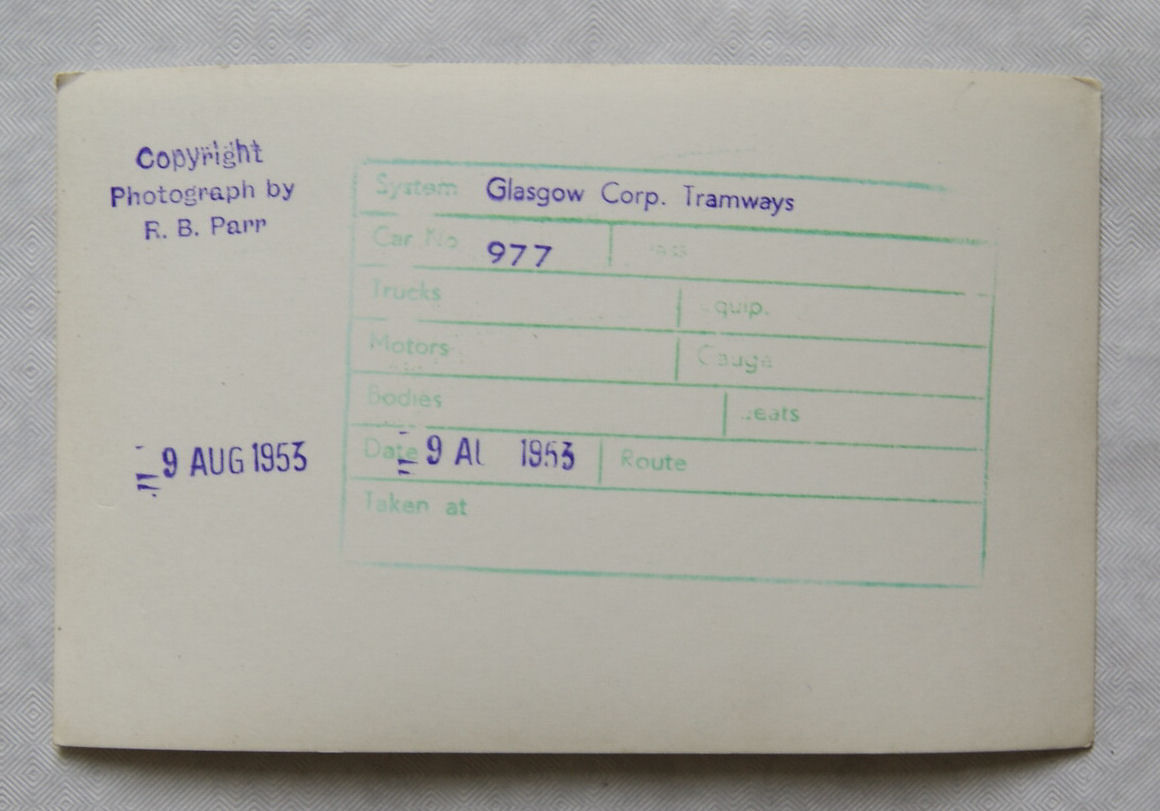 Copyright
Photograph by
R. B. Parr
System Glasgow Corp. Tramways
Car No 977
Trucks quip.
Motors Gauge
Bodies eats
-9 AUG 1953
Date -9 AU 1953 Route
Taken at